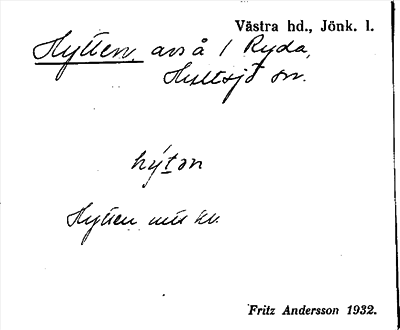 Västra hd., Jönk. l.
Hytten, avs å 1 Ryda,
Hultsjö sn.
hý̱tən
Hytten
Fritz Andersson 1932.